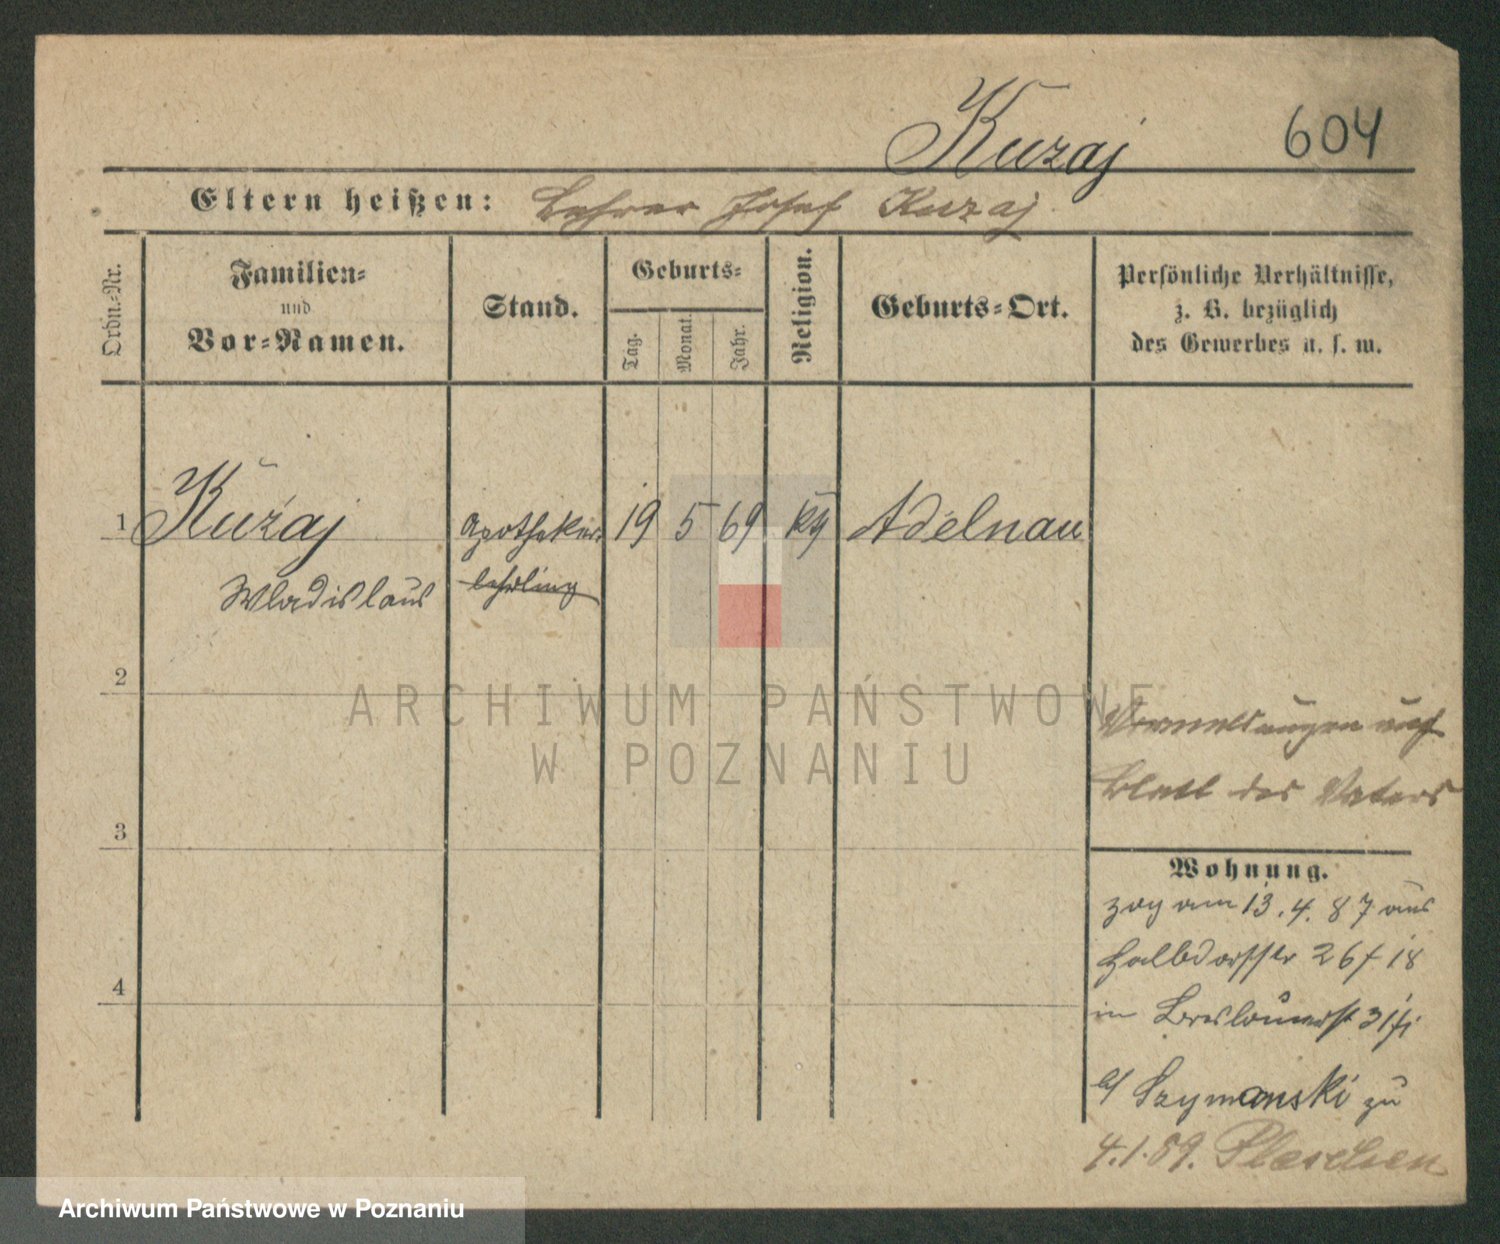 Kuzaj 604
Eltern heißen: Lehrer Josef Kuzaj
Ordn.-Nr.
Familien-
und
Vor-Namen.
Stand.
Geburts-
Tag.
Monat.
Jahr.
Religion.
Geburts-Ort.
Persönliche Verhältnisse,
z. B. bezüglich
des Gewerbes u. s. w.
1 Kuźaj Apotheker- 19 5 69 kth Adelnau
Wladislaus lehrling
2
ARCHIWUM PAŃSTWOWE
W POZNANIU
Vermeldungen auf
Blatt des Vaters
3
Wohnung.
zog am 13. 4. 87 aus
Halbdorfstr 26 f 18
4
in Breslauerst 31 f
b/ Szymanski zu
4.1.89. Pleschen
Archiwum Państwowe w Poznaniu